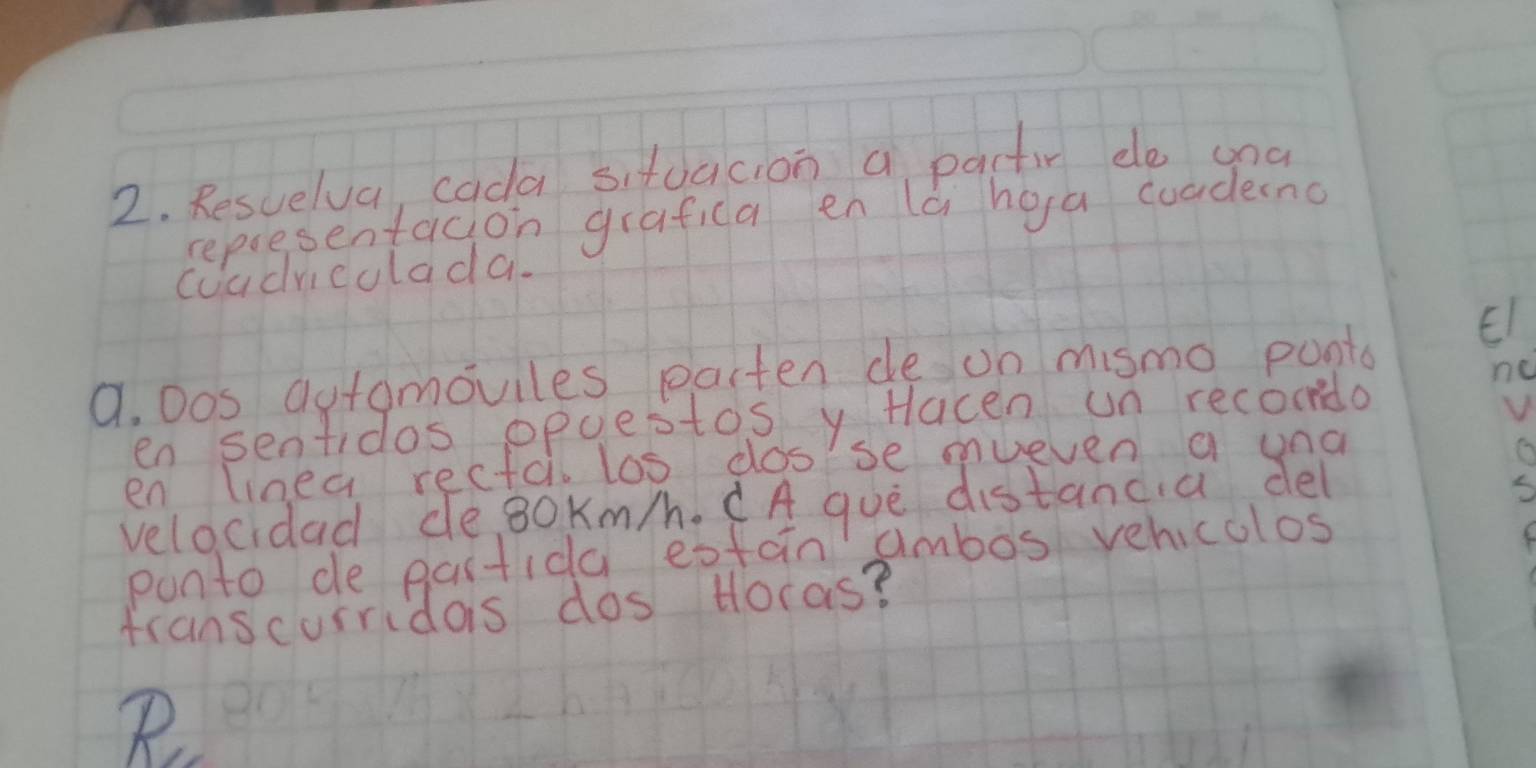 2. Resuelva, cada situación a partir de una
representación grafica en la hoja cuaderno
cuadriculada.
a. Dos automóviles parten de un mismo punto
en sentidos opuestos y Hacen un recorrido
en linea recta. los dos se mueven a una
velocidad de 80Km/h. ¿A qué distancia del
punto de partida están ambos vehiculos
transcurridas dos Horas?
R//
El